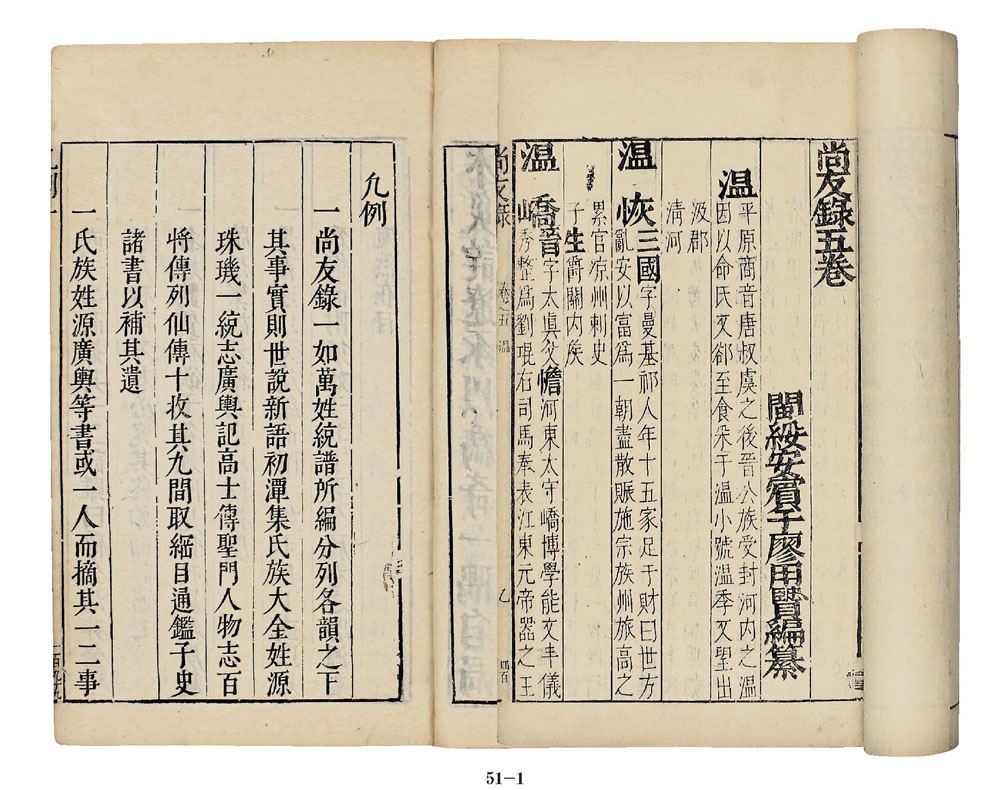 尚友錄五卷
閩綏安賓于廖用賢編纂
溫 平原商音唐叔虞之後晉公族受封河內之溫
因以命氏又郤至食采于溫小號溫季又望出
汲郡
清河
溫恢三國字曼基祁人年十五家足于財曰世方
亂安以富爲一朝盡散賑施宗族州旅高之
累官凉州刺史
子生爵關內矦
溫嶠晉字太真父憺河東太守嶠博學能文丰儀
秀整爲劉琨右司馬奉表江東元帝器之王
尚友錄 卷之五 溫
凡例
一尚友錄一如萬姓統譜所編分列各韻之下
其事實則世說新語初潭集氏族大全姓源
珠璣一統志廣輿記高士傳聖門人物志百
將傳列仙傳十收其九間取綱目通鑑子史
諸書以補其遺
一氏族姓源廣輿等書或一人而摘其一二事
51-1